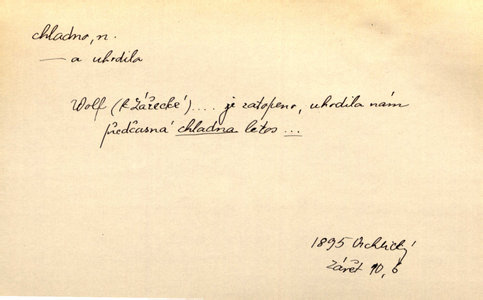 chladno, n.
— a uhodila
Wolf (k Zářecké) .... je zatopeno, uhodila nám
předčasná chladna letos ...
1895 Vrchlický
Závět 90, 6